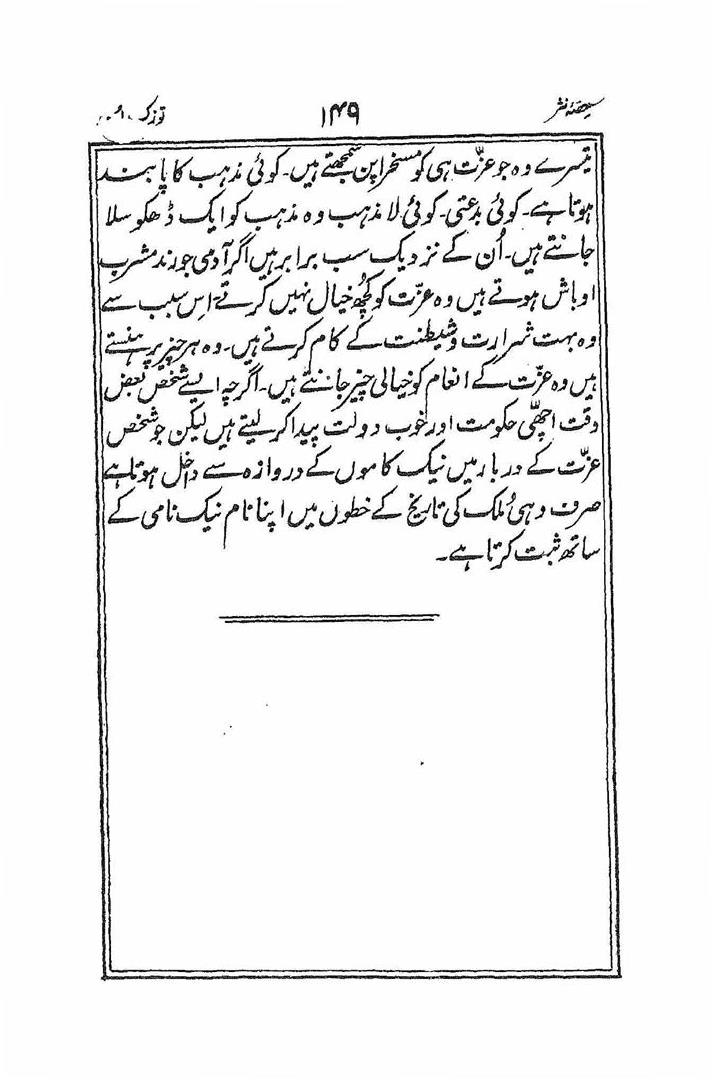 حصّۂ نثر ۱۴۹ توزک
تیسرے وہ جو عزّت ہی کو مسخراپن سمجھتے ہیں۔ کوئی مذہب کا پابند
ہوتا ہے۔ کوئی بدعتی۔ کوئی لا مذہب وہ مذہب کو ایک ڈھکوسلا
جانتے ہیں۔ اُن کے نزدیک سب برابر ہیں اگر آدمی جو رند مشرب
اوباش ہوتے ہیں وہ عزّت کو کچُھ خیال نہیں کرتے اِس سبب سے
وہ بہت شرارت و شیطنت کے کام کرتے ہیں۔ وہ ہر چیز پر ہنستے
ہیں وہ عزّت کے انعام کو خیالی چیز جانتے ہیں۔ اگرچہ ایسے شخص بعض
وقت اچھّی حکومت اور خوب دولت پیدا کر لیتے ہیں لیکن جو شخص
عزّت کے دربار میں نیک کاموں کے دروازہ سے داخل ہوتا ہے
صرف وہی مُلک کی تاریخ کے خطوں میں اپنا نام نیک نامی کے
ساتھ ثبت کرتا ہے۔